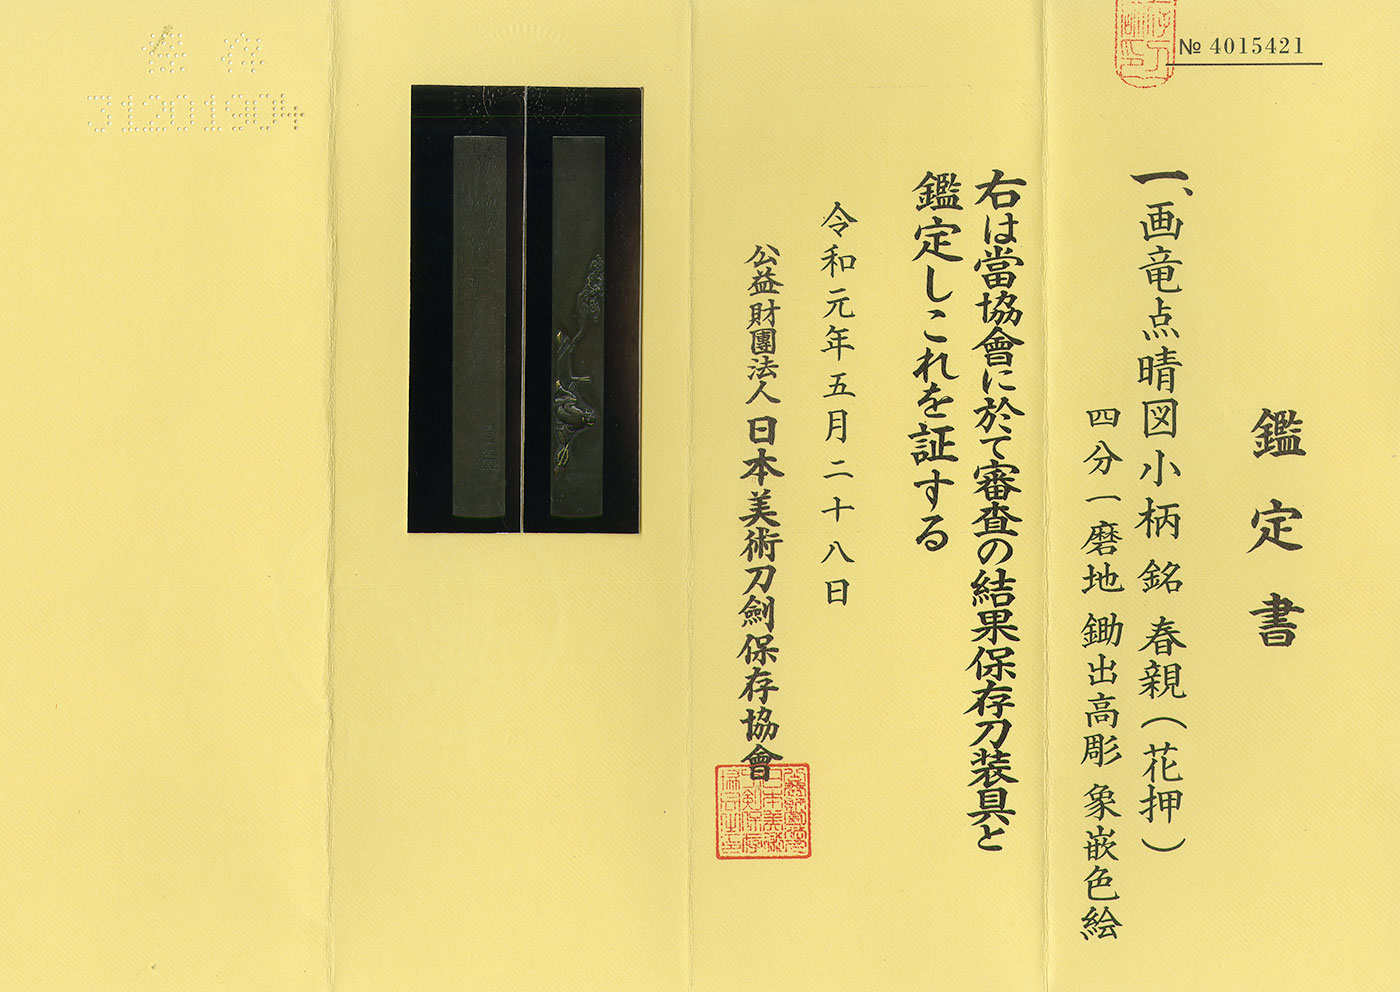 № 4015421
鑑定書
一、画竜点晴図小柄 銘 春親（花押）
四分一磨地 鋤出高彫 象嵌色絵
右は當協會に於て審査の結果保存刀装具と
鑑定しこれを証する
令和元年五月二十八日
公益財團法人 日本美術刀劍保存協會
31201904